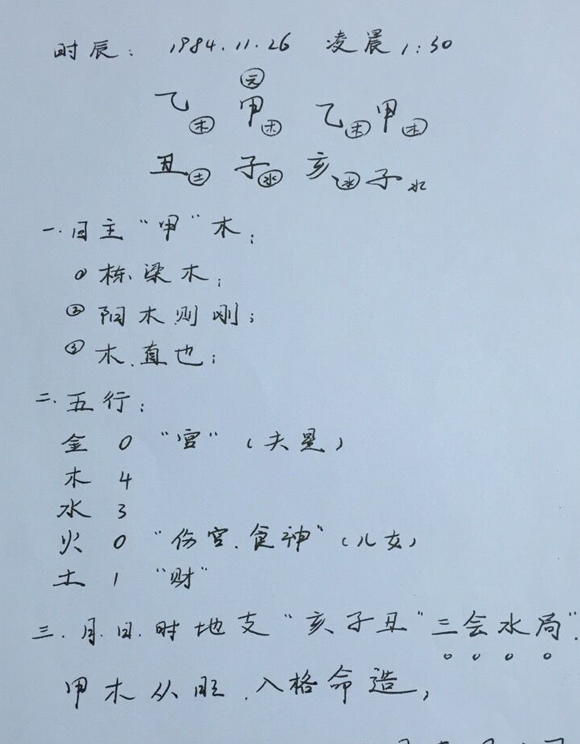 时辰: 1984.11.26 凌晨1:30
元
乙木 甲木 乙木 甲木
丑土 子水 亥水 子水
一.日主"甲"木;
① 栋梁木;
② 阳木则刚;
③ 木.直也;
二.五行:
金 0 "宫"(夫星)
木 4
水 3
火 0 "伤宫.食神"(儿女)
土 1 "财"
三.月.日.时地支"亥子丑"三会水局".
甲木从旺.入格命造,